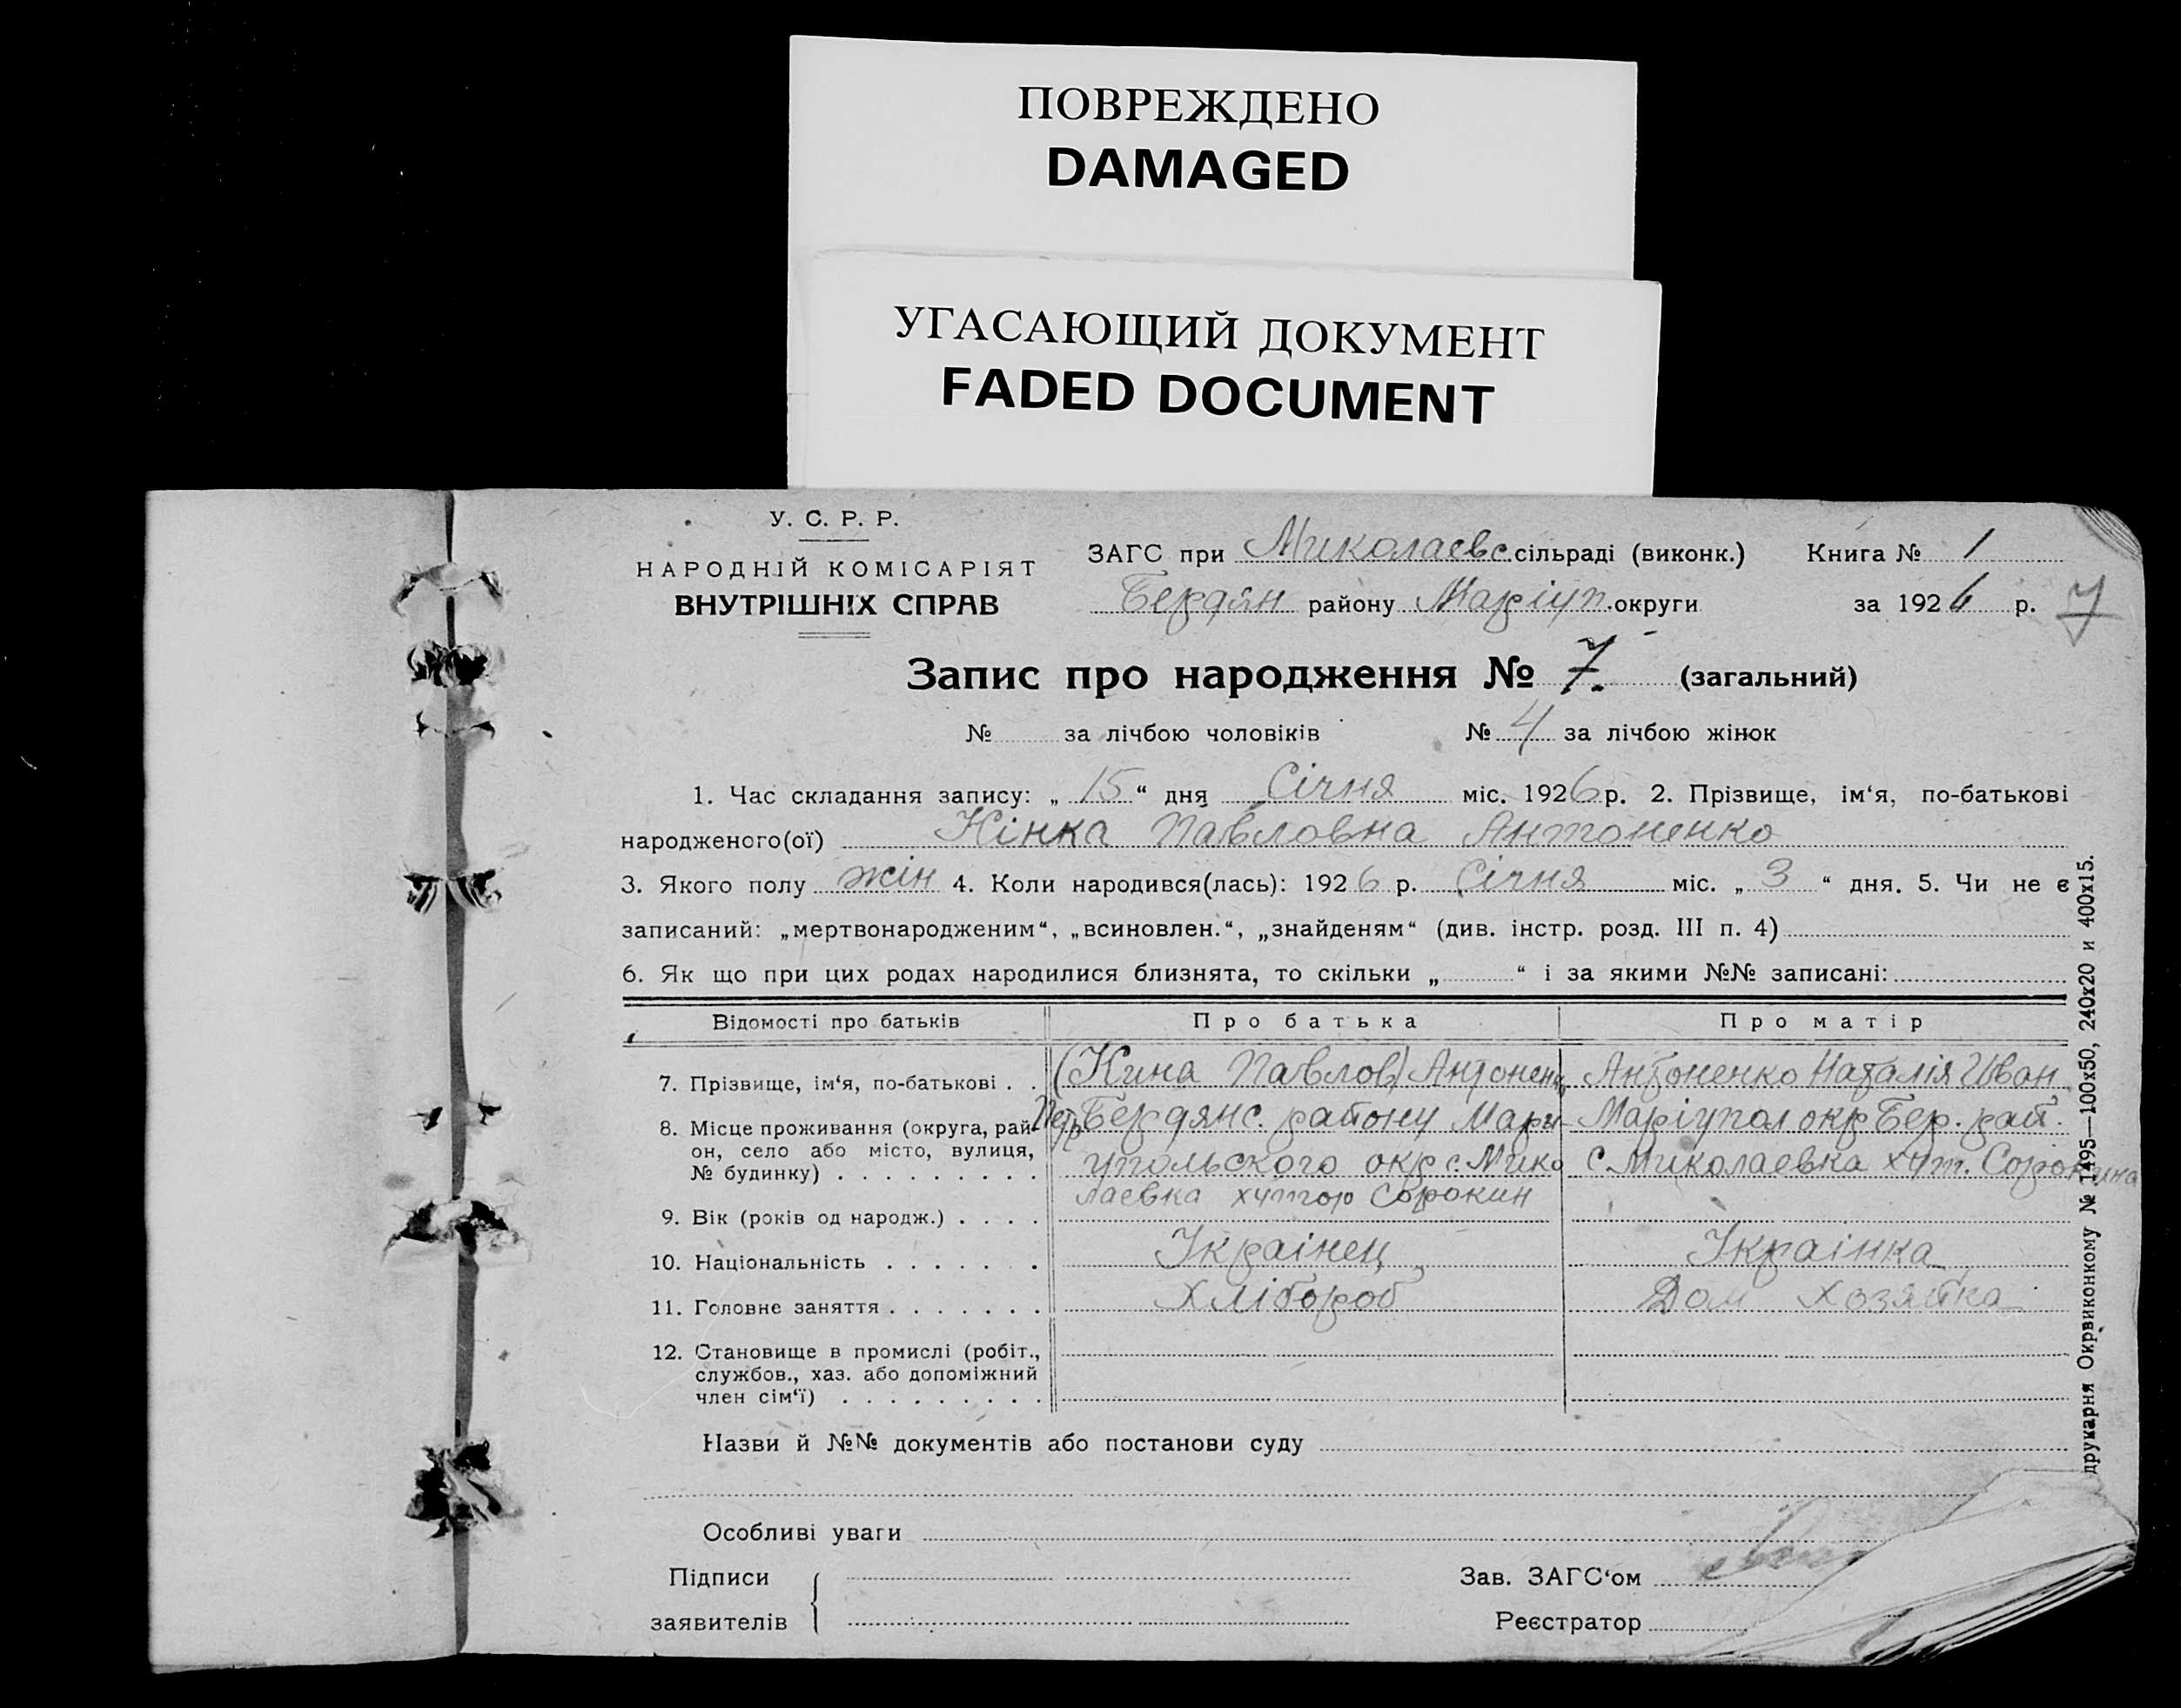 ПОВРЕЖДЕНО
DAMAGED
УГАСАЮЩИЙ ДОКУМЕНТ
FADED DOCUMENT
У. С. Р. Р.
НАРОДНІЙ КОМІСАРІЯТ
ВНУТРІШНІХ СПРАВ
ЗАГС при Миколаевс. сільраді (виконк.) Книга № 1
Бердян району Маріуп. округи за 1926 р. 7
Запис про народження № 7. (загальний)
№ за лічбою чоловіків № 4 за лічбою жінок
1. Час складання запису: „ 15 “ дня Січня міс. 1926 р. 2. Прізвище, ім‘я, по-батькові
народженого(ої) Нінка Павловна Антоненко
3. Якого полу жін 4. Коли народився(лась): 1926 р. Січня міс. „ 3 “ дня. 5. Чи не є
записаний: „мертвонародженим“, „всиновлен.“, „знайденям“ (див. інстр. розд. III п. 4)
6. Як що при цих родах народилися близнята, то скільки „ “ і за якими №№ записані:
Відомості про батьків Про батька Про матір
7. Прізвище, ім‘я, по-батькові . . (Нина Павлов) Антоненко Антоненко Наталія Иван
8. Місце проживання (округа, рай- Бердянс. району Мари- Маріупол окр Бер. рай.
он, село або місто, вулиця, упольского окр с. Мико с. Миколаевка хут. Сорокина
№ будинку) . . . . . . . . . лаевка хутор Сорокин
9. Вік (років од народж.) . . . .
10. Національність . . . . . . . Українец Українка
11. Головне заняття . . . . . . . Хлібороб Дом хозяйка
12. Становище в промислі (робіт.,
службов., хаз. або допоміжний
член сім‘ї) . . . . . . . . .
Назви й №№ документів або постанови суду
Особливі уваги
Підписи
заявителів
Зав. ЗАГС‘ом
Реєстратор
друкарня Окрвиконкому № 1495—100х50, 240х20 и 400х15.